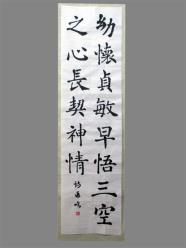 幼懷貞敏早悟三空
之心長契神情